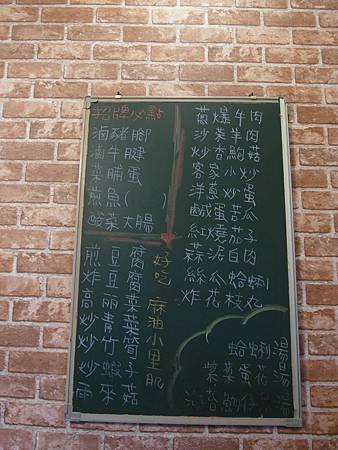 招牌必點
滷豬腳
滷牛腱
菜脯蛋
煎魚( )
酸菜大腸
煎豆腐
炸豆腐
高麗菜
炒青菜
炒竹筍
炒蝦子
雨來菇
好吃 麻油小里肌
蔥爆牛肉
沙茶羊肉
炒杏鮑菇
客家小炒
洋蔥炒蛋
鹹蛋苦瓜
紅燒茄子
蒜泥白肉
絲瓜蛤蜊
炸花枝丸
蛤蜊湯
紫菜蛋花湯
魩仔魚湯